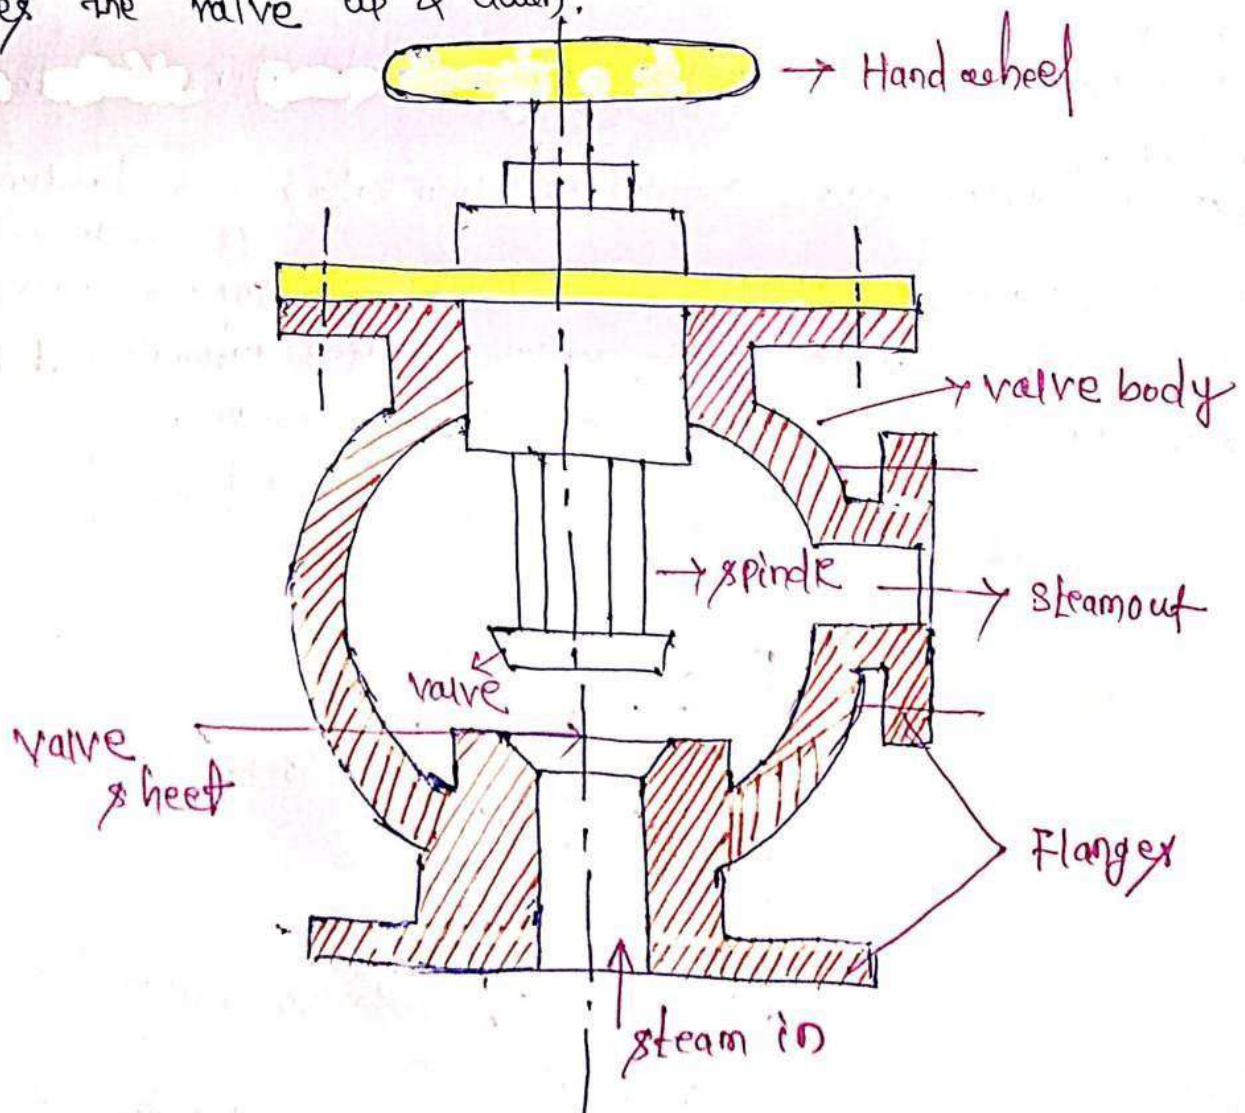 the valve up & down.
Hand wheel
valve body
spindle
steamout
valve
valve
sheet
Flanges
steam in